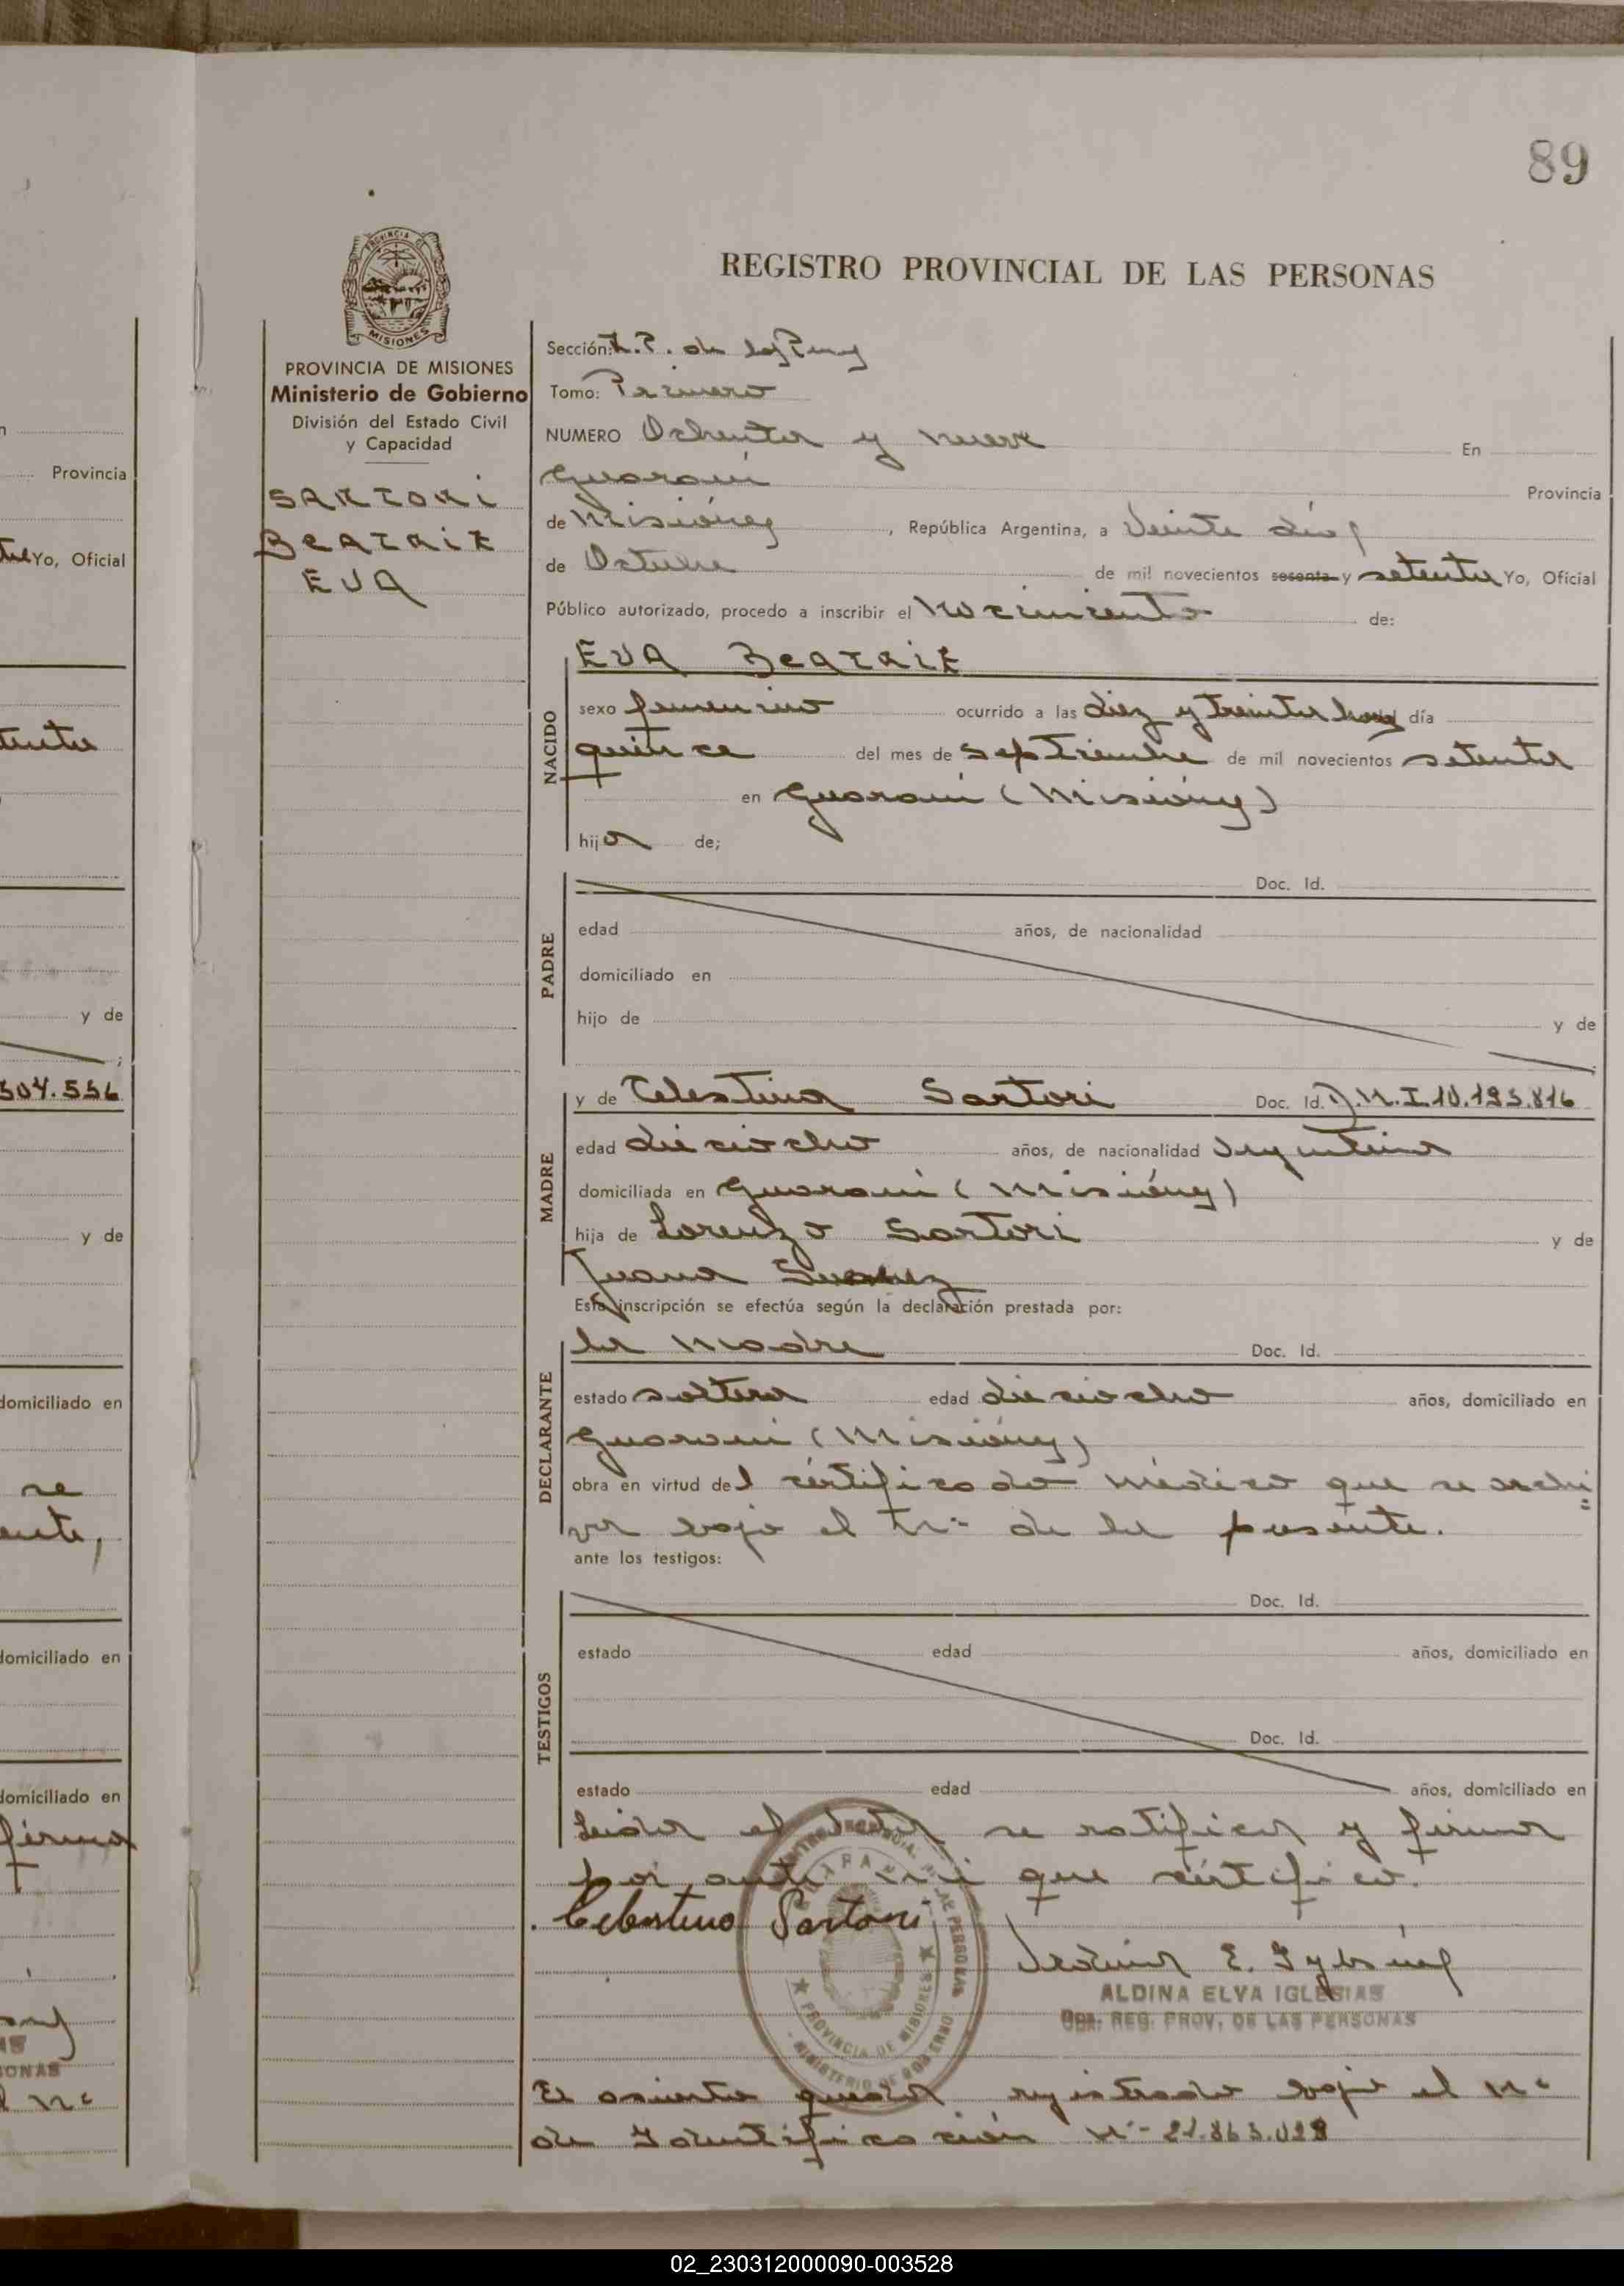 89
REGISTRO PROVINCIAL DE LAS PERSONAS
MISIONES
PROVINCIA DE MISIONES
Ministerio de Gobierno
División del Estado Civil
y Capacidad
SARTORI
BEATRIZ
EVA
Sección: R.P. de las Pers
Tomo: Primero
NUMERO Ochenta y nueve En
Guaraní Provincia
de Misiónes, República Argentina, a Veinte días
de Octubre de mil novecientos sesenta y setenta Yo, Oficial
Público autorizado, procedo a inscribir el Nacimiento de:
EVA BEATRIZ
NACIDO
sexo femenino ocurrido a las diez y treinta horas día
quince del mes de Septiembre de mil novecientos setenta
en Guaraní (Misiónes)
hija de;
PADRE
Doc. Id.
edad años, de nacionalidad
domiciliado en
hijo de y de
MADRE
y de Celestina Sartori Doc. Id. D.N.I. 10.193.816
edad dieciocho años, de nacionalidad Argentina
domiciliada en Guaraní (Misiónes)
hija de Lorenzo Sartori y de
Juana Suarez
Esta inscripción se efectúa según la declaración prestada por:
DECLARANTE
la Madre Doc. Id.
estado soltera edad dieciocho años, domiciliado en
Guaraní (Misiónes)
obra en virtud del certificado médico que se archi=
va bajo el Nº de la presente.
ante los testigos:
TESTIGOS
Doc. Id.
estado edad años, domiciliado en
Doc. Id.
estado edad años, domiciliado en
Leida el Acta se ratifica y firma
por ante mi que certifico.
Celestina Sartori
PROVINCIA DE MISIONES
MINISTERIO DE GOBIERNO
ALDINA ELVA IGLESIAS
REG. PROV. DE LAS PERSONAS
El asiento queda registrado bajo el nº
de Identificación Nº- 21.863.028
Provincia
Yo, Oficial
y de
304.556
y de
domiciliado en
se
domiciliado en
domiciliado en
firma
02_230312000090-003528